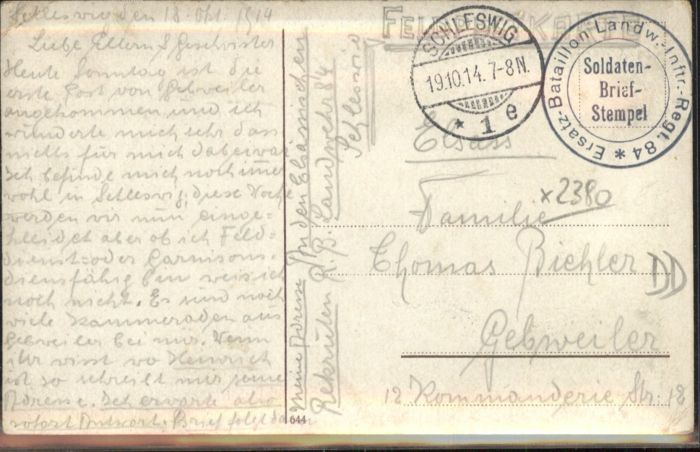 Schleswig den 18. Okt. 1914
Liebe Eltern & Geschwister
Heute Sonntag ist die
erste Post von Gebweiler
angekommen und ich
wunderte mich sehr das
nichts für mich dabei war
Ich befinde mich noch immer
wohl in Schleswig, diese Woche
werden wir nun einge-
kleidet aber ob ich Feld-
dienst oder Garnisons-
dienstfähig bin weis ich
noch nicht. Es sind noch
viele Kammeraden aus
Gebweiler bei mir. Wenn
ihr wisst wo Heinrich
ist so schreibt mir seine
Adresse. Ich erwarte also
sofort Antwort. Brief folgt
Meine Adresse
Rekruten
Landwehr 84
Schleswig
644
FELDPOSTKARTE
SCHLESWIG
19.10.14. 7-8 N.
* 1 e
Ersatz-Bataillon Landw.-Inftr.-Regt. 84 *
Soldaten-
Brief-
Stempel
Elsass
x2380
Familie
Thomas Biehler
DD
Gebweiler
12 Kommanderie Str. 18